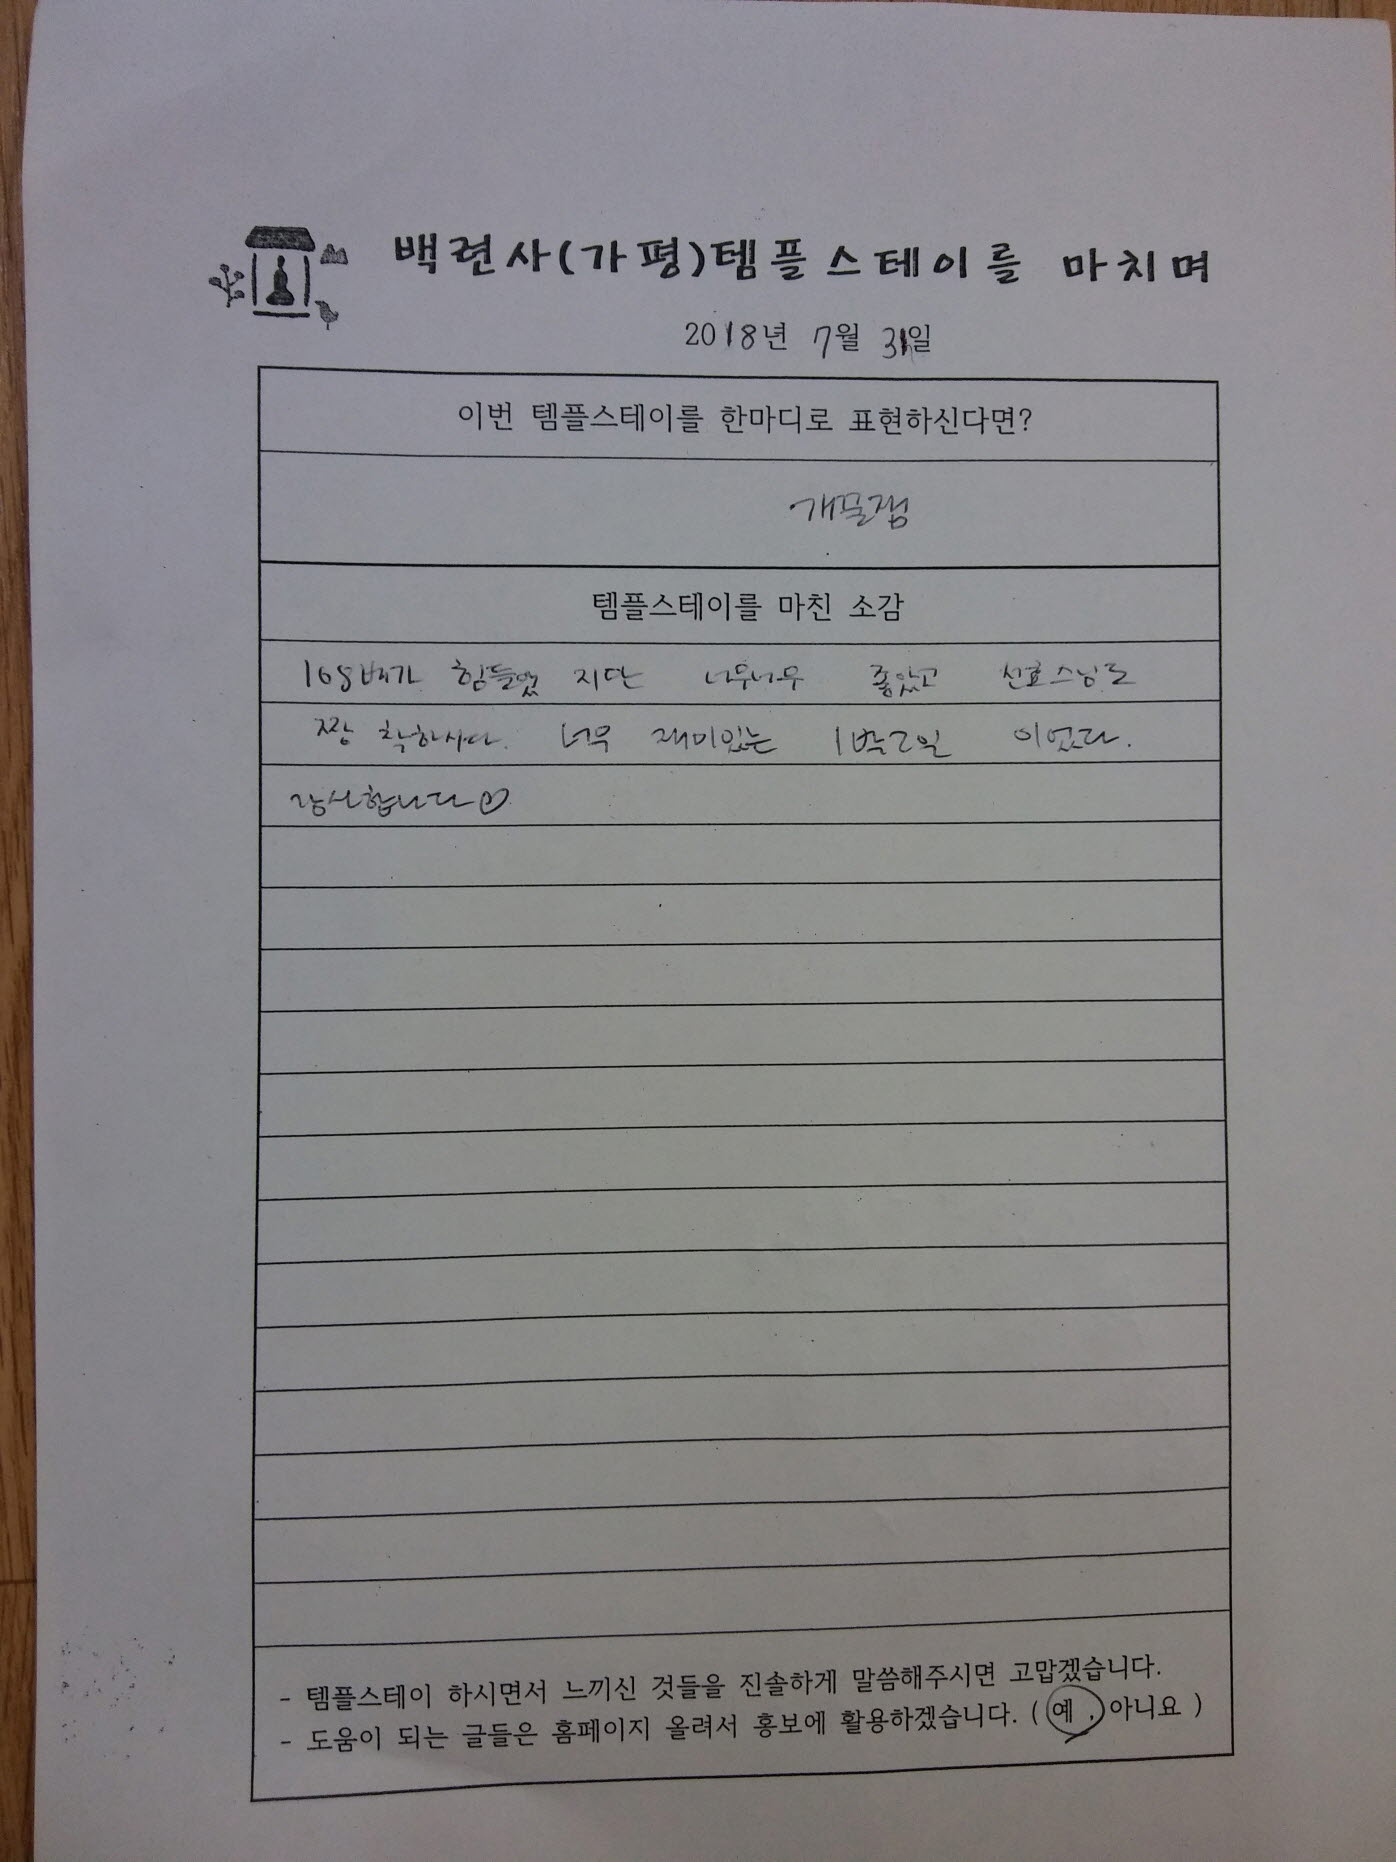 백련사(가평)템플스테이를 마치며
2018년 7월 31일
이번 템플스테이를 한마디로 표현하신다면?
개꿀잼
템플스테이를 마친 소감
108배가 힘들었 지만 너무너무 좋았고 선효스님도
짱 착하시다. 너무 재미있는 1박2일 이었다.
감사합니다♡
- 템플스테이 하시면서 느끼신 것들을 진솔하게 말씀해주시면 고맙겠습니다.
- 도움이 되는 글들은 홈페이지 올려서 홍보에 활용하겠습니다. ( 예 , 아니요 )